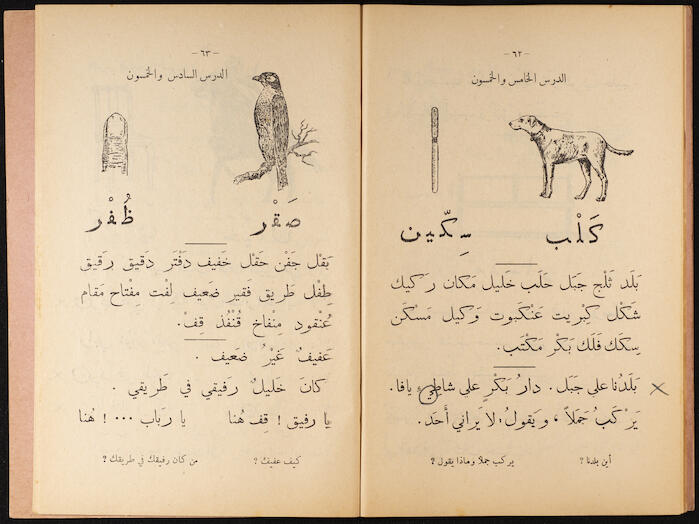 — ٦٢ —
الدرس الخامس والخمسون
كَلْب سِكِّين
بَلَد ثَلْج جَبَل حَلَب خَليل مَكان رَكيك
شَكْل كِبْريت عَنْكَبوت وَكيل مَسْكَن
سِكَك فَلَك بَكْر مَكْتَب.
بَلَدُنا على جَبَل. دارُ بَكْرٍ على شاطِئِ يافا.
يَرْكَبُ جَمَلاً، ويَقولُ: لا يَراني أَحَد.
أين بلدنا ؟ يركب جملا وماذا يقول ؟
— ٦٣ —
الدرس السادس والخمسون
صَقْر ظُفْر
بَقْل جَفْن حَقْل خَفيف دَفْتَر دَقيق رَقيق
طِفْل طَريق فَقير ضَعيف لِفْت مِفْتاح مَقام
عُنْقود مِنْفاخ قُنْفُذ قِفْ.
عَفيفٌ غَيْرُ ضَعيف .
كانَ خَليلٌ رَفيقي في طَريقي .
يا رَفيق ! قِف هُنا يا رَباب ... ! هُنا
كيف عفيف ؟ من كان رفيقك في طريقك ؟